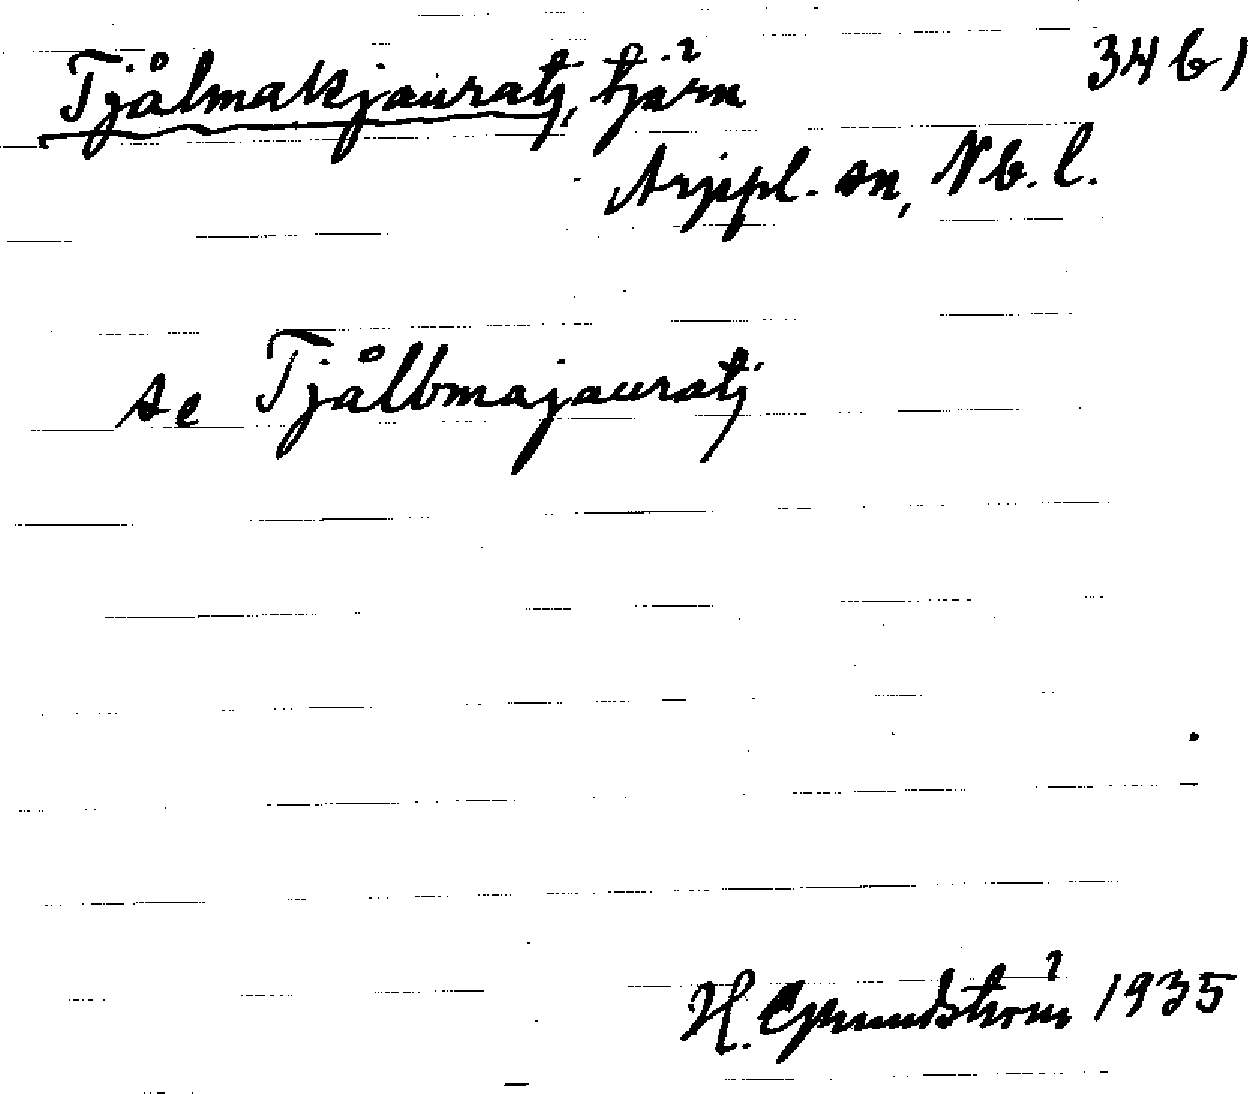 Tjålmakjauratj, tjärn 34 b)
Arjepl. sn, Nb. l.
se Tjålbmajauratj
H. Grundström 1935